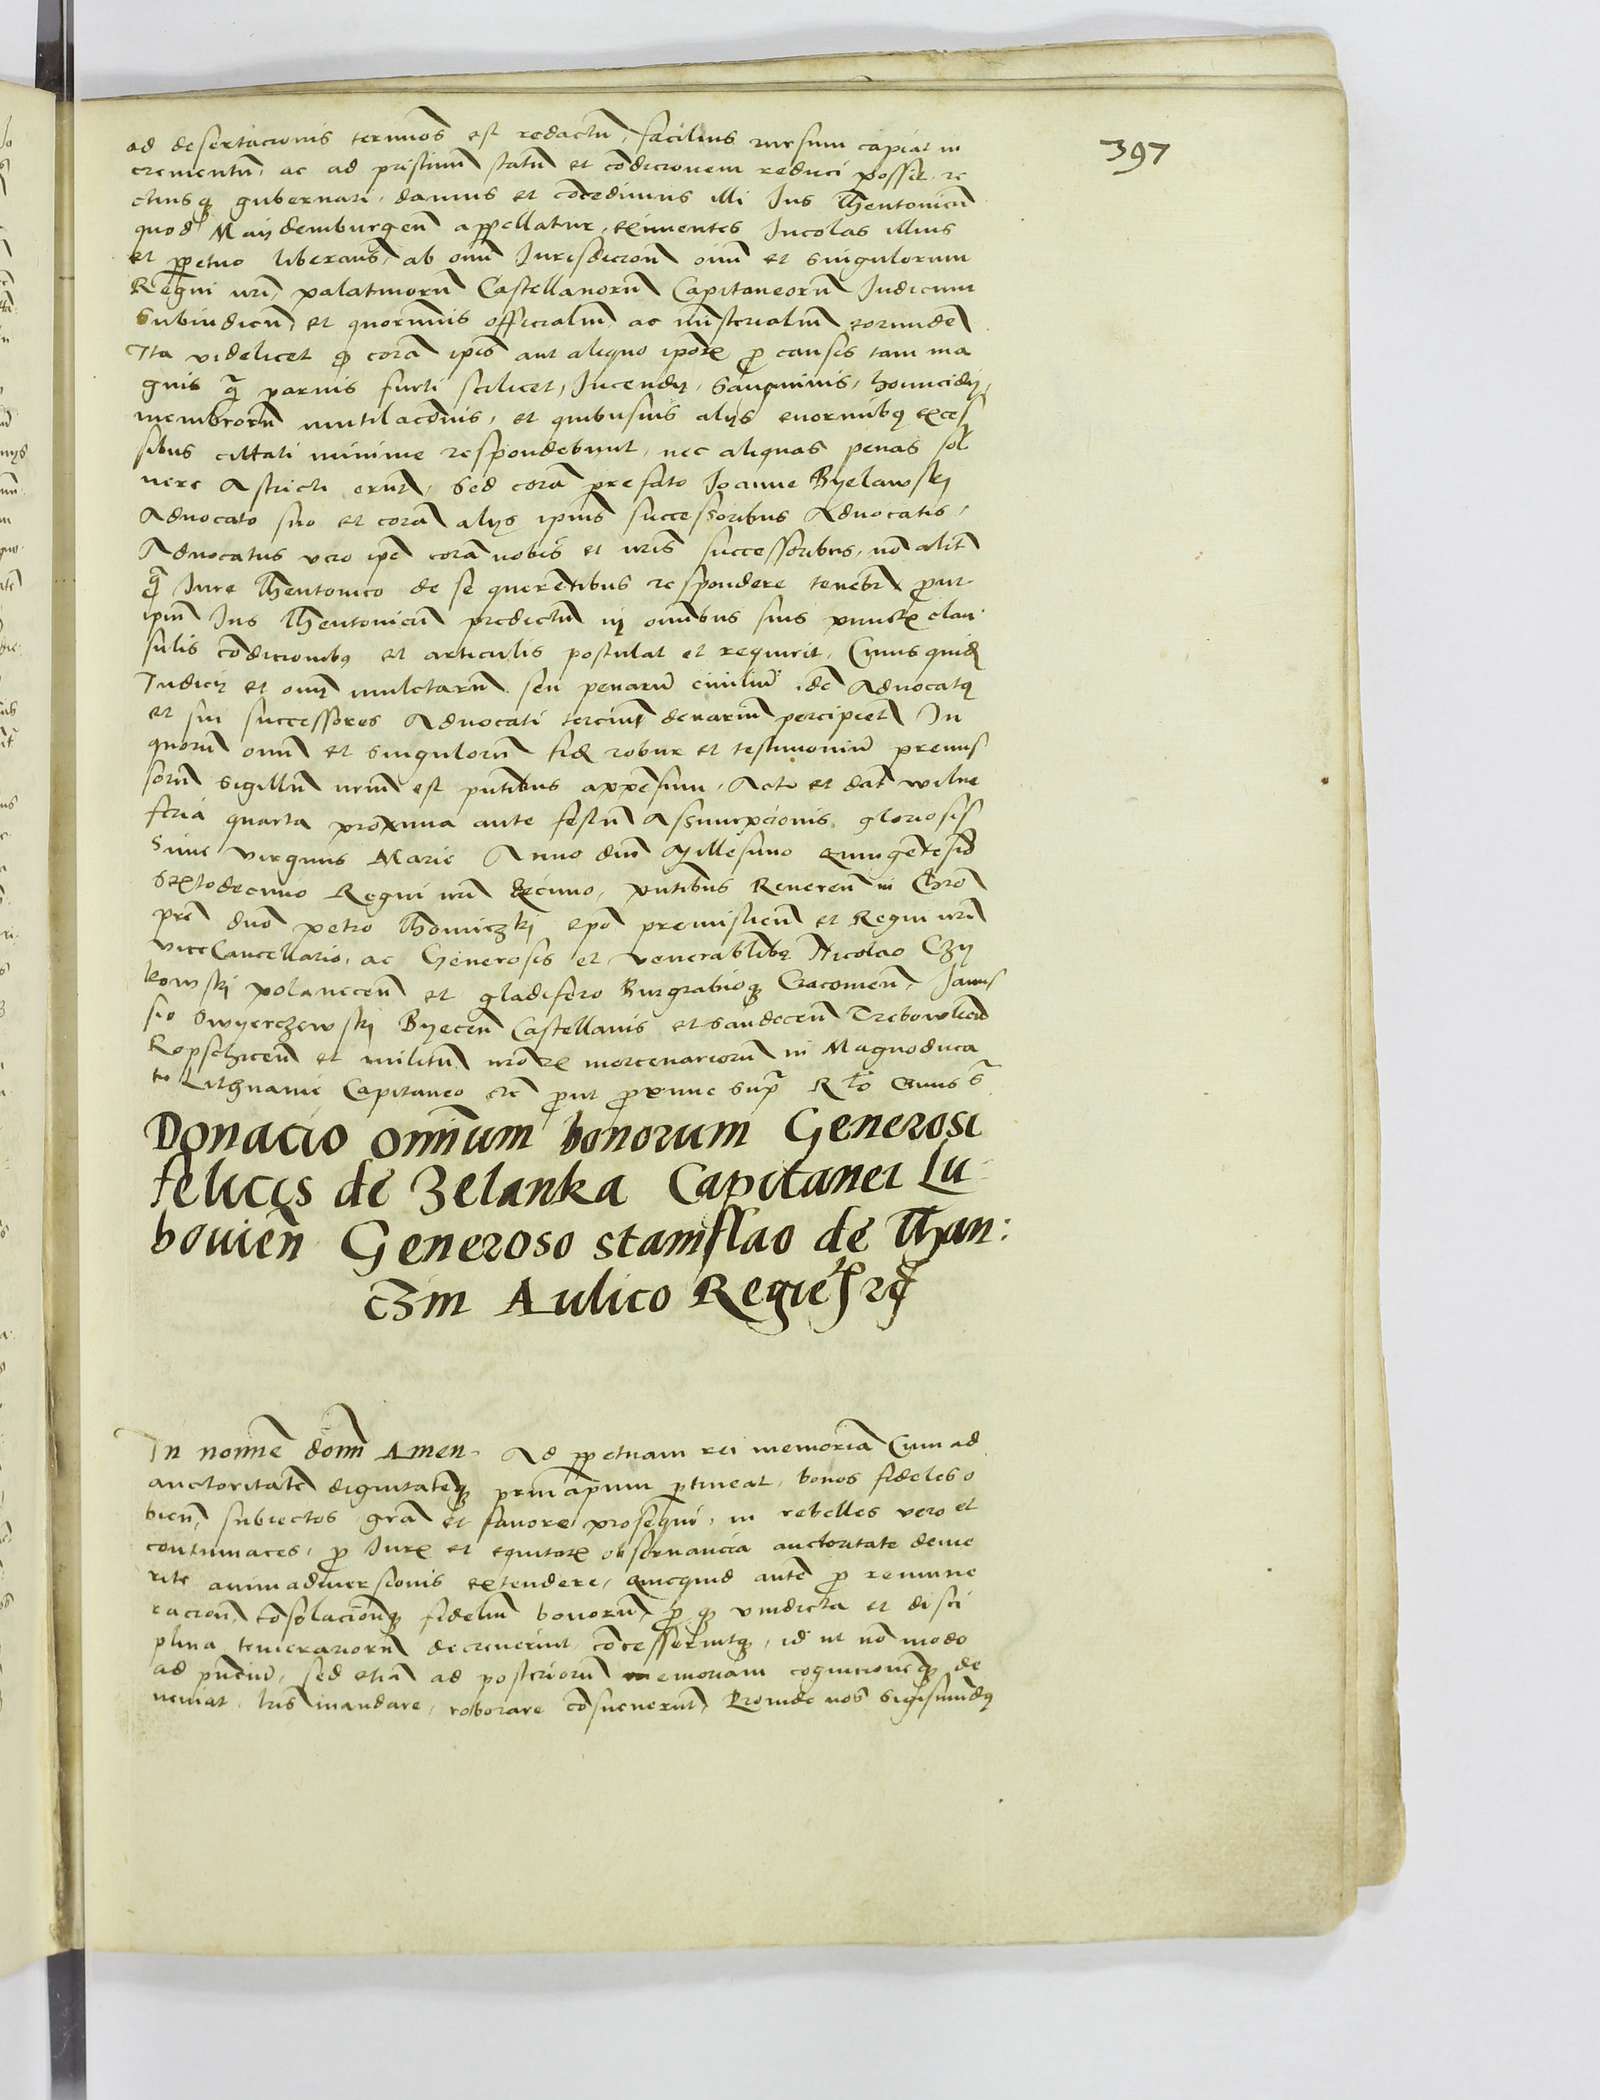 397
ad desertacionis terminos est redactũ, facilius rursum capiat in
crementũ, ac ad pristinũ statũ et cõdicionem reduci possit re
ctiusq̃ gubernari, damus et cõcedimus illi Jus Theutonicũ
quod Maydemburgeñ appellatur, eximentes Incolas illius
et ꝑpetuo liberañ, ab omĩ Jurisdicioñ oĩm et singulorum
Regni nrĩ, palatinorũ Castellanorũ Capitaneorũ Judicum
Subiudicũ et quorumuis officialiũ ac ministerialiũ eorundẽ
Ita videlicet ꝙ corã ipĩs aut aliquo ipõrꝫ ꝓ causis tam ma
gnis ꝙ̃ paruis furti scilicet, Incendy, Sanguinis, homicidy,
membrorũ mutilacõnis, et quibusuis alys enormibꝗ exces
sibus cittati minime respondebunt, nec aliquas penas sol
uere astricti erũt, Sed corã prefato Joanne Byelawskj
Aduocato suo et corã alys ipĩus successoribus Aduocatis,
Aduocatus vero ipẽ corã nobis et nrĩs successoribus, nõ alit̃
ꝙ̃ Jure Theutonico de se querẽtibus respondere tenebit̃ ꝓut
ipm̃ Jus Theutonicũ predictũ in oĩnibus suis punctꝫ clau
sulis cõdicionibꝗ et articulis postulat et requirit, Cuius quidẽ
Judicy et oĩm mulctarũ seu penarũ ciuiliũ idẽ Aduocatꝗ
et sui successores Aduocati terciũ denariũ percipiet̃ In
quorũ oĩm et singulorũ fidẽ robur et testimoniũ premis
sorũ Sigillũ nrũm est pñtibus appẽsum, Actũ et dat̃ wilne
feria quarta proxima ante festũ Assumpcionis gloriosis
sime virginis Marie Anno dñi Millesimo Quingẽtesiõ
Sextodecimo Regni nrĩ decimo, pñtibus Reuereñ in Chrõ
pr̃e dñõ petro Thomiczkj epõ premislieñ et Regni nrĩ
viceCancellario, ac Generosis et venerabilibꝗ Nicolao Czy
kowskj polaneceñ et gladifero Burgrabioꝗ Cracouieñ, Janus
sio Swyerczewskj Byeceñ Castellanis et Sandeceñ Trebowlieñ
Ropschiceñ et militũ nrõrꝫ mercenariorũ in Magnoduca
tu Lithuanie Capitaneo etc̃ ꝓut ꝓxime Supͣ Rlõ Eiusͣ
Donacio omnium bonorum Generosi
felicis de Zelanka Capitanei Lu
bouieñ Generoso stanislao de Than:
czin Aulico Regie
In nomie domĩ Amen. Ad ꝑpetuam rei memoriã Cum ad
auctoritatẽ dignitatẽꝗ principum ꝑtineat, bonos fideles o
bieñ, subiectos grã et fauore prosequi, in rebelles vero et
contumaces, ꝓ Jurꝫ et equitatꝫ obseruancia auctoritatẽ deme
rite animaduersionis extendere, quicquid autẽ ꝓ remune
racioñ, cõsolacionꝗ fideliũ bonorũ, ꝓ ꝗ vindicta et disci
plina temerariorũ decreuerint cõcesserintꝗ, id ut nõ modo
ad pñciũ, sed etiã ad posteriorũ memoriam cognicionẽꝗ de
ueniat, lrĩs mandare, roborare cõsueuerũt, Proinde nos Sigismũdꝗ